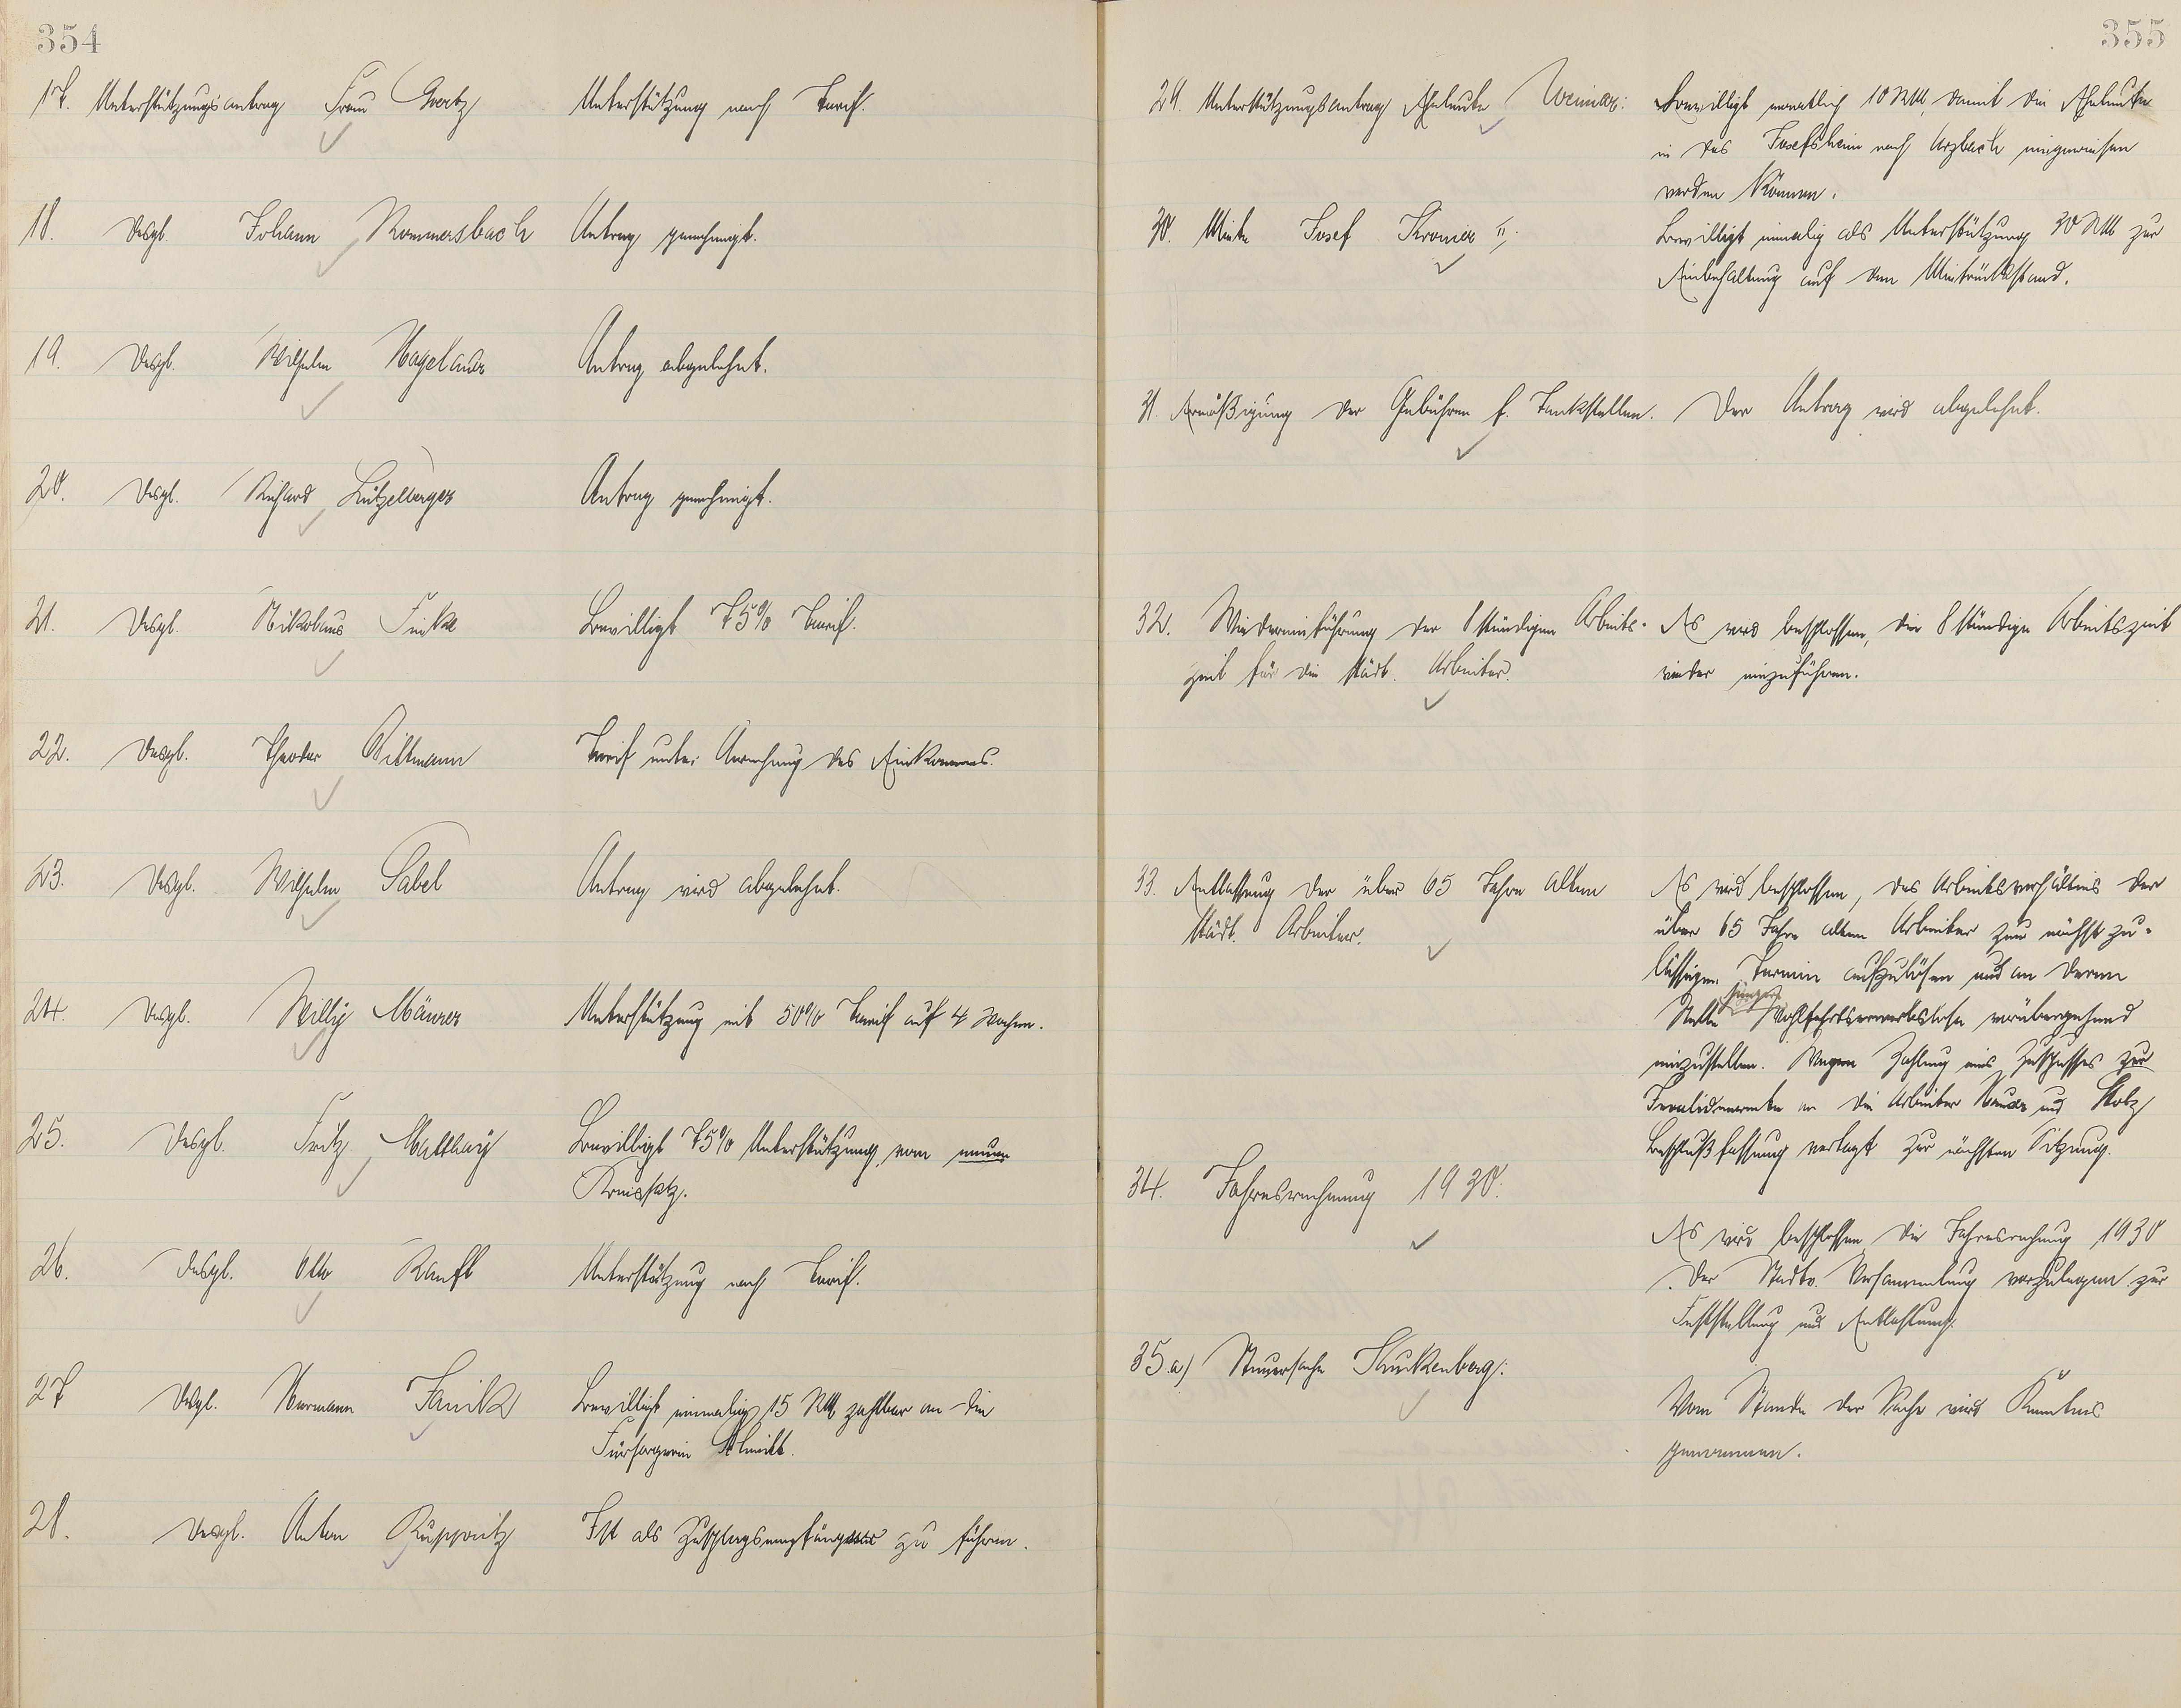 354
17. Unterstützungsantrag Frau Gertz Unterstützung nach Tarif.
18. Desgl. Johann Rommersbach Antrag genehmigt.
19. Desgl. Wilhelm Nagelauer Antrag abgelehnt.
20. Desgl. Richard Lützelberger Antrag genehmigt.
21. Desgl. Nikolaus Finke Bewilligt 75% Tarif.
22. Desgl. Theodor Dittmann Tarif unter Anrechnung des Einkommens.
23. Desgl. Wilhelm Sabel Antrag wird abgelehnt.
24. Desgl. Willy Mäurer Unterstützung mit 50% Tarif auf 4 Wochen.
25. Desgl. Fritz Matthäy Bewilligt 75% Unterstützung vom neuen
Kreissatz.
26. Desgl. Otto Ranft Unterstützung nach Tarif.
27 Desgl. Hermann Janik Bewilligt einmalig 15 RM, zahlbar an die
Fürsorgerin Schmitt.
28. Desgl. Anton Ruppritz Ist als Zuschlagsempfänger zu führen.
355
29. Unterstützungsantrag Eheleute Weimar: Bewilligt monatlich 10 RM, damit die Eheleute
in das Josefsheim nach Arzbach eingewiesen
werden können.
30. Miete Josef Kromer II. Bewilligt einmalig als Unterstützung 30 RM zur
Einbehaltung auf den Mietrückstand.
31. Ermäßigung der Gebühren f. Tankstellen. Der Antrag wird abgelehnt.
32. Wiedereinführung der 8 stündigen Arbeits- Es wird beschlossen, die 8 stündige Arbeitszeit
zeit für die städt. Arbeiter. wieder einzuführen.
33. Entlassung der über 65 Jahre alten Es wird beschlossen, das Arbeitsverhältnis der
städt. Arbeiter. über 65 Jahre alten Arbeiter zum nächst zu-
lässigen Termin aufzulösen und an deren
Stelle jüngere Wohlfahrtserwerbslose vorübergehend
einzustellen. Wegen Zahlung eines Zuschusses zur
Invalidenrente an die Arbeiter und Stolz
Beschlußfassung vertagt zur nächsten Sitzung.
34. Jahresrechnung 1930:
Es wird beschlossen die Jahresrechnung 1930
der Stadtv. Versammlung vorzulegen zur
Feststellung und Entlastung.
35.a) Steuersache Stuckenberg:
Vom Stande der Sache wird Kenntnis
genommen.